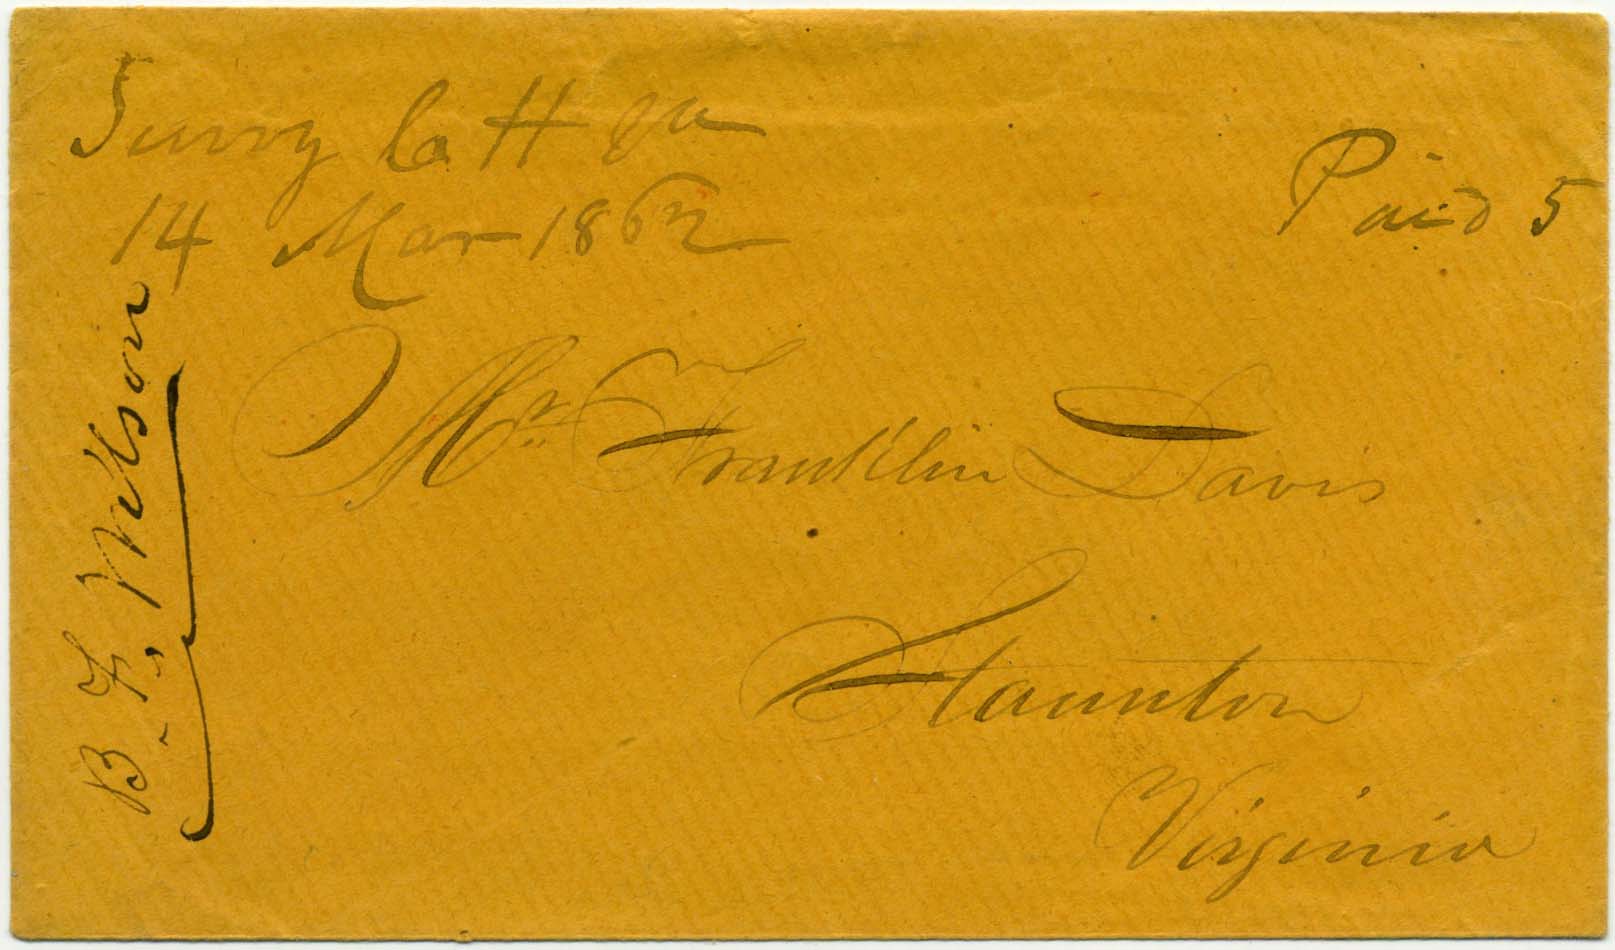 Surry Co C H Va
14 Mar 1862
Paid 5
Mr. Franklin Davis
Staunton
Virginia
B. F. Wilson